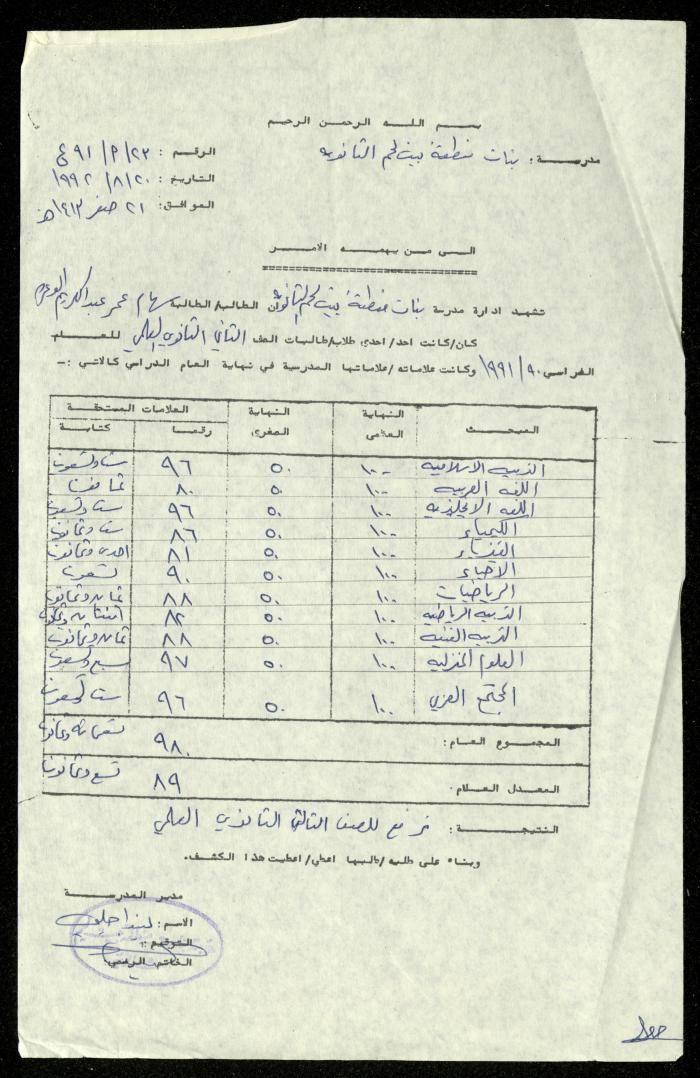 بسم الله الرحمن الرحيم
مدرسة: بنات منطقة بيت لحم الثانوية
الرقم :
التاريخ : ٢٠/٨/١٩٩٢
الموافق: ٢١ صفر ١٤١٣هـ
الى من يهمه الامر
تشهد ادارة مدرسة بنات منطقة بيت لحم الثانوية ان الطالب/الطالبة سهام عمر عبد الكريم
كان/كانت احد/احدى طلاب/طالبات الصف الثاني الثانوي العلمي للعام
الدراسي ٩٠/١٩٩١ وكانت علاماته/علاماتها المدرسية في نهاية العام الدراسي كالاتي :-
المبحث النهاية العظمى النهاية الصغرى العلامات المستحقة
رقما كتابة
التربيه الاسلاميه ١٠٠ ٥٠ ٩٦ ست وتسعون
اللغه العربيه ١٠٠ ٥٠ ٨٠ ثمانون
اللغه الانجليزيه ١٠٠ ٥٠ ٩٦ ست وتسعون
الكيمياء ١٠٠ ٥٠ ٨٦ ست وثمانون
الفيزياء ١٠٠ ٥٠ ٨١ احدى وثمانون
الاحياء ١٠٠ ٥٠ ٩٠ تسعون
الرياضيات ١٠٠ ٥٠ ٨٨ ثمان وثمانون
التربيه الرياضيه ١٠٠ ٥٠ ٨٢ اثنتان وثمانون
التربيه الفنيه ١٠٠ ٥٠ ٨٨ ثمان وثمانون
العلوم المنزليه ١٠٠ ٥٠ ٩٧ سبع وتسعون
المجتمع العربي ١٠٠ ٥٠ ٩٦ ست وتسعون
المجموع العام: ٩٨٠ تسعمائة وثمانون
المعدل العام: ٨٩ تسع وثمانون
النتيجة : ترفع للصف الثالث الثانوي العلمي
وبناء على طلبه/طلبها اعطي/اعطيت هذا الكشف.
مدير المدرسة
الاسم:
التوقيع:
الخاتم الرسمي: